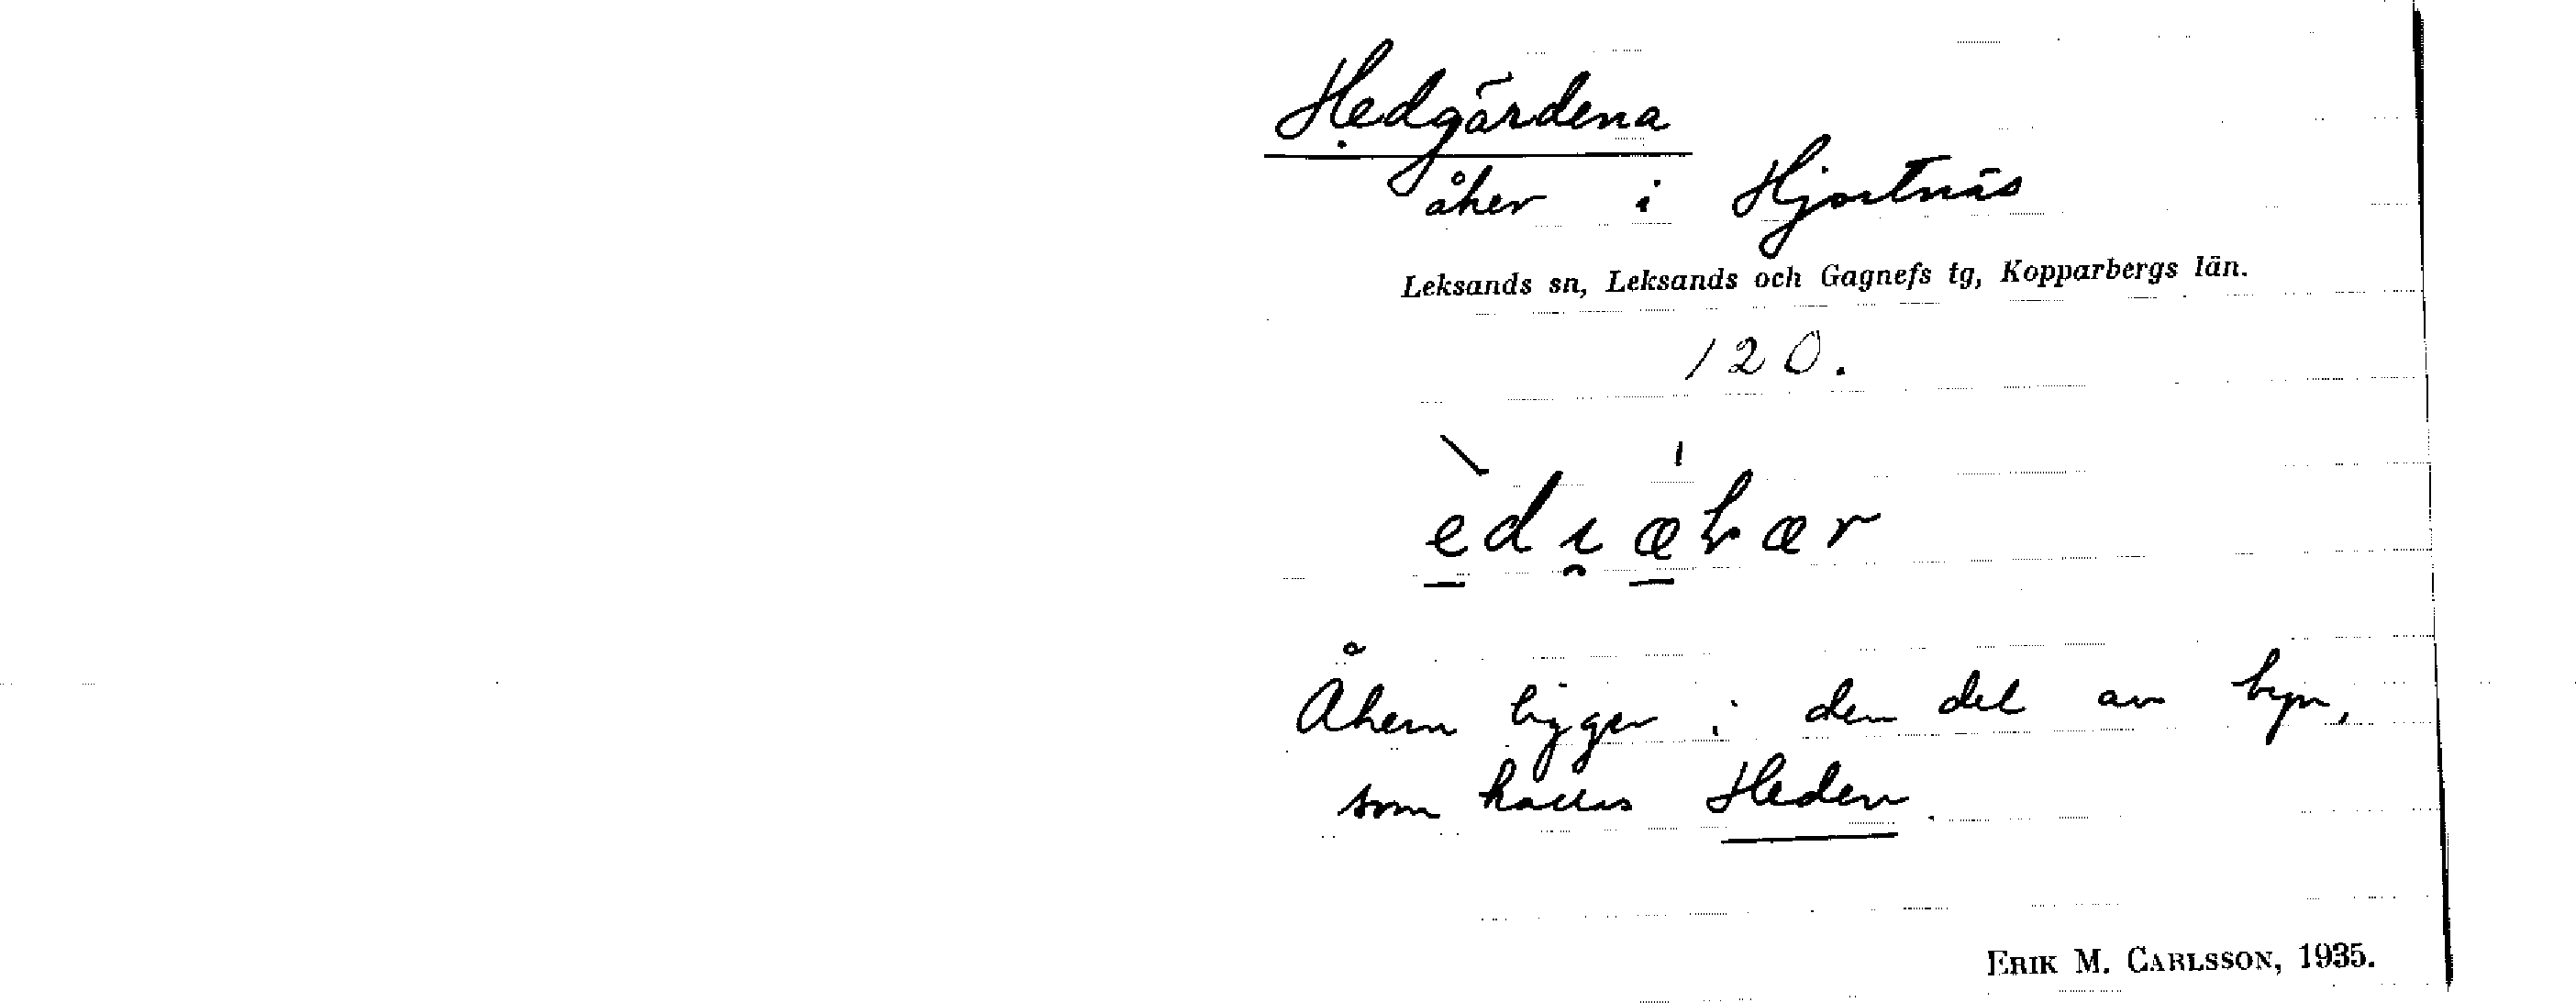 Hedgärdena
åker i Hjortnäs
Leksands sn, Leksands och Gagnefs tg, Kopparbergs län.
120.
Åkern ligger i den del av byn,
som kallas Heden.
ERIK M. CARLSSON, 1935.